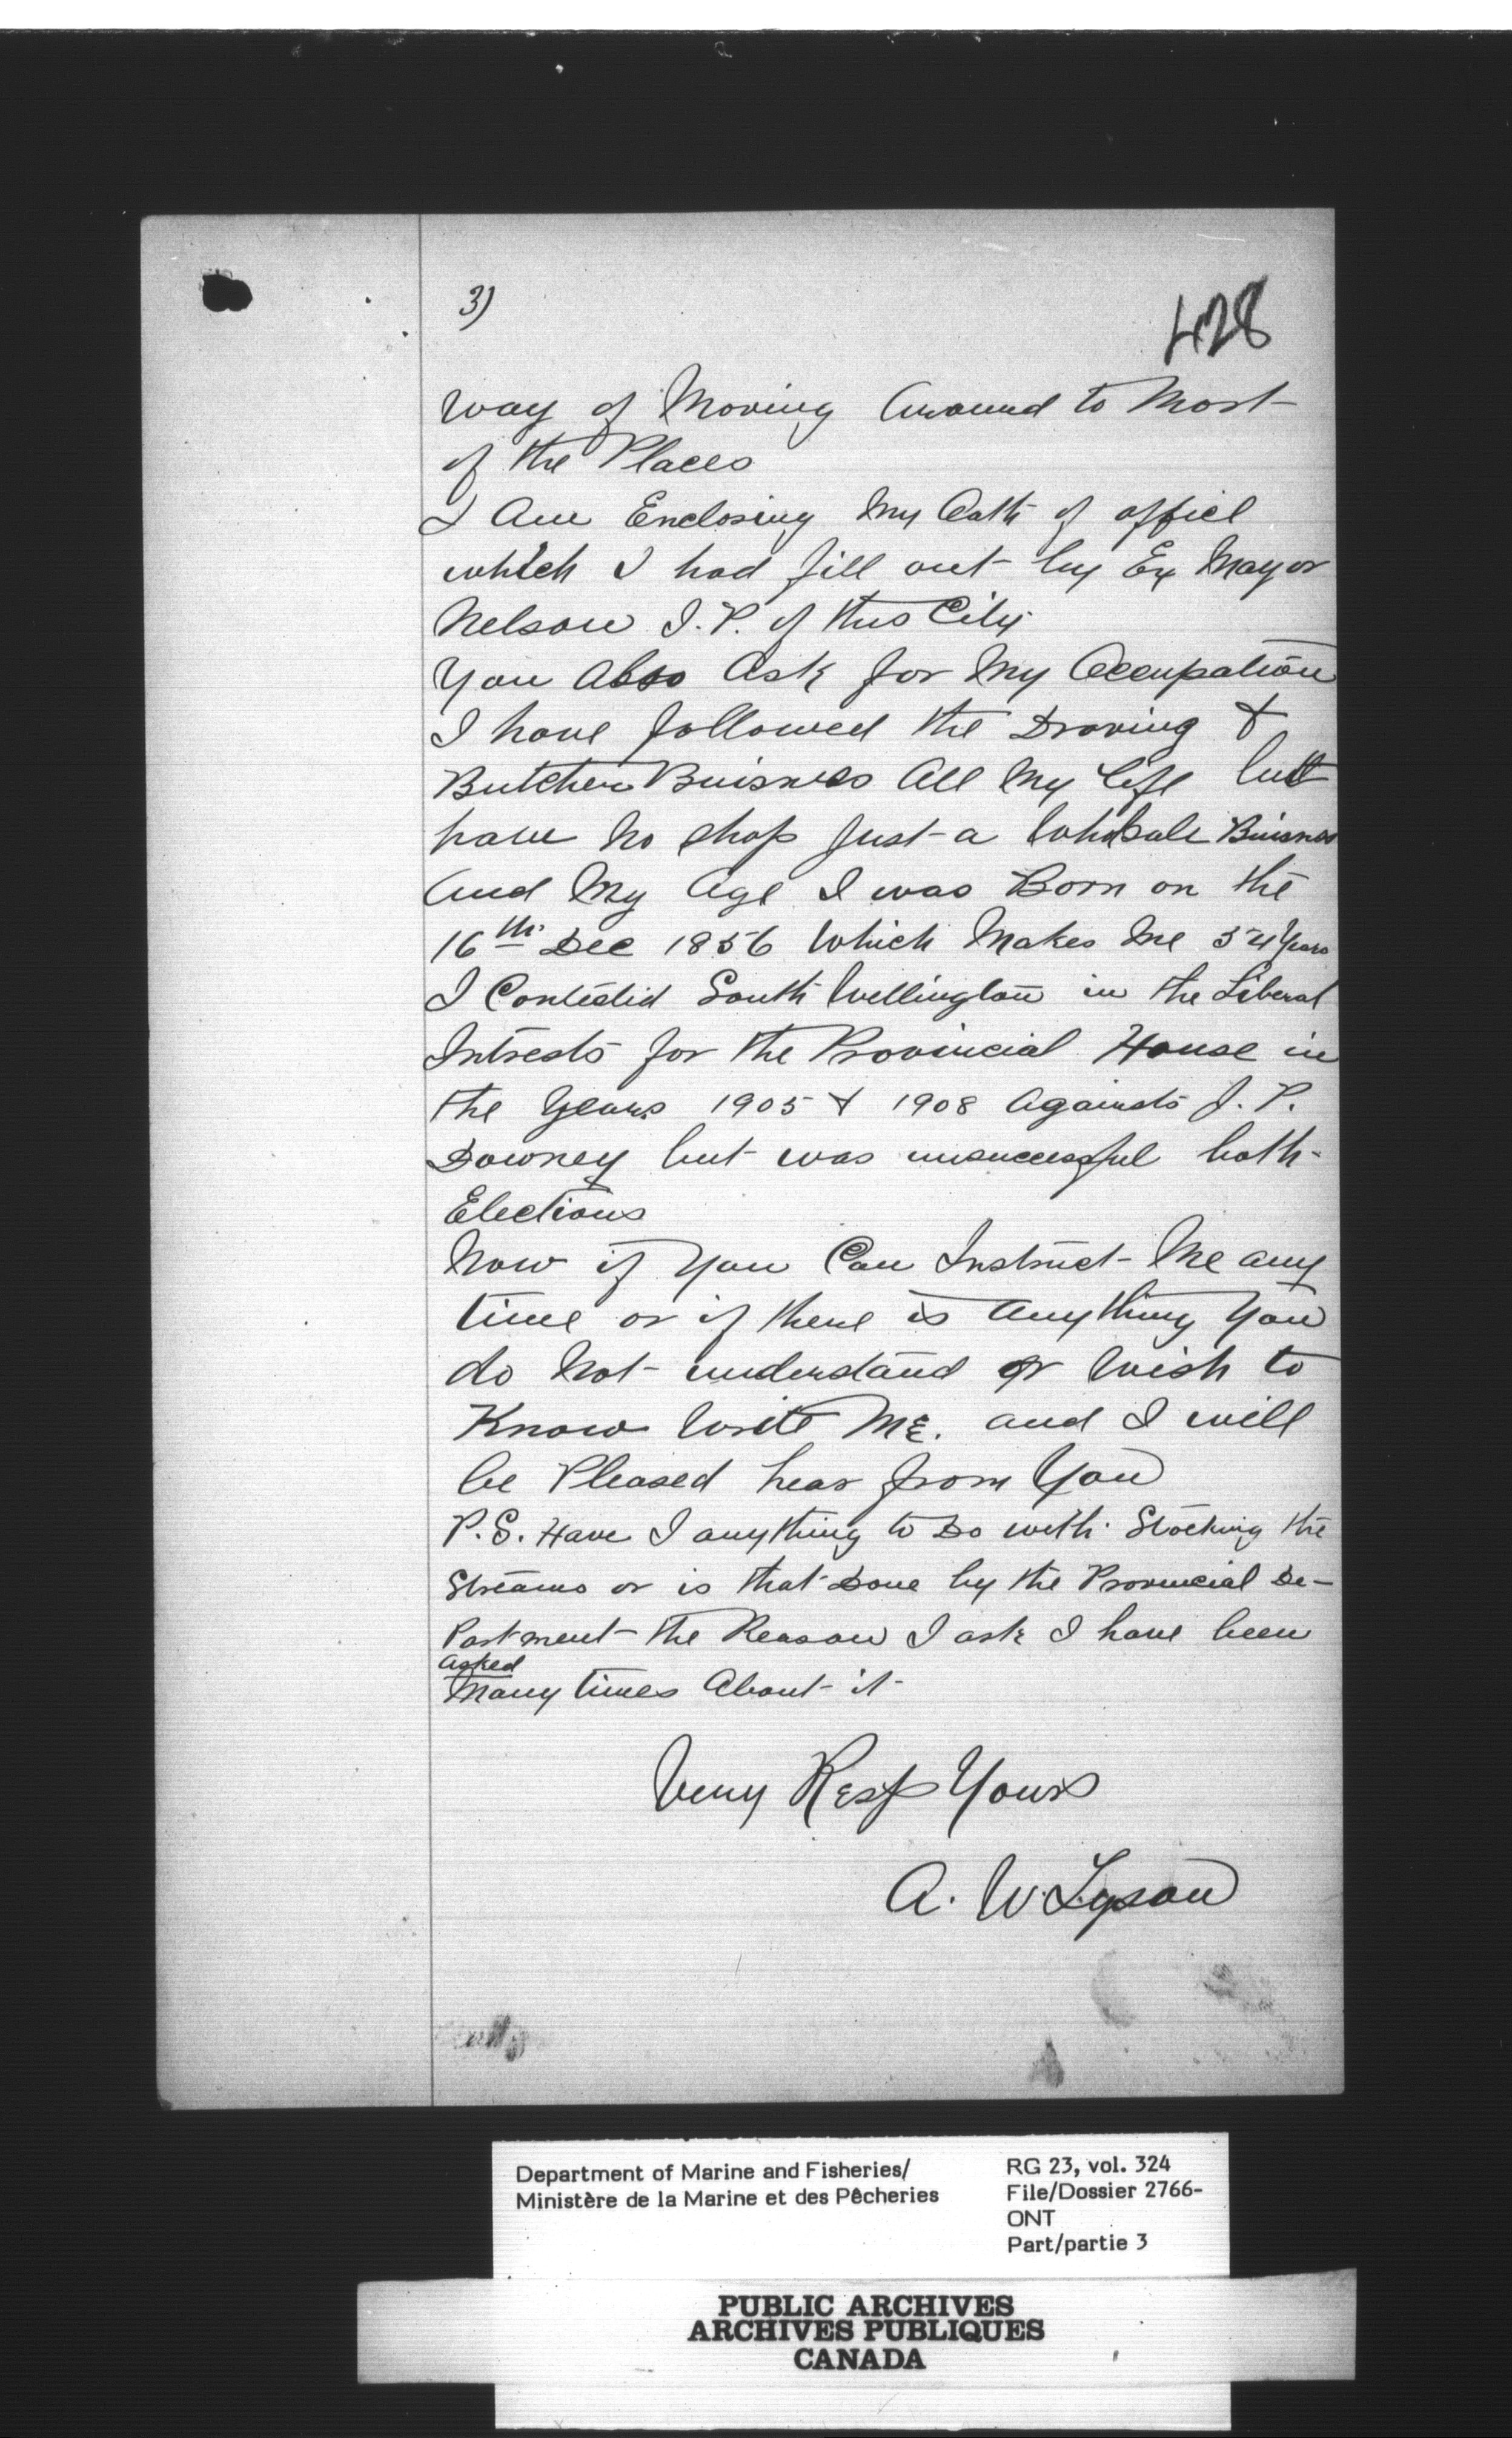 3)
428
Way of Moving Around to Most
of the Places
I Am Enclosing My Oath of office
which I had fill out by Ex Mayor
Nelson J.P. of this City
You Also Ask for My Occupation
I have followed the Droving &
Butcher Buisness All My life but
have No shop Just a Wholsale Buisness
And My Age I was Born on the
16th Dec 1856 Which Makes Me 54 Years
I Contestid South Wellington in the Liberal
Intrests for the Provincial House in
the Years 1905 & 1908 Againsts J. P.
Downey but was unsuccessful both
Elections
Now if You Can Instruct Me any
time or if there is Anything You
do Not understand or Wish to
Know Write Me. and I will
be Pleased hear from You
P.S. Have I anything to Do with Stocking the
Streams or is that Done by the Provincial De-
Partment the Reason I ask I have been
asked
Many times About it
Very Resp Yours
A. W. Tyson
Department of Marine and Fisheries/
Ministère de la Marine et des Pêcheries
RG 23, vol. 324
File/Dossier 2766-
ONT
Part/partie 3
PUBLIC ARCHIVES
ARCHIVES PUBLIQUES
CANADA